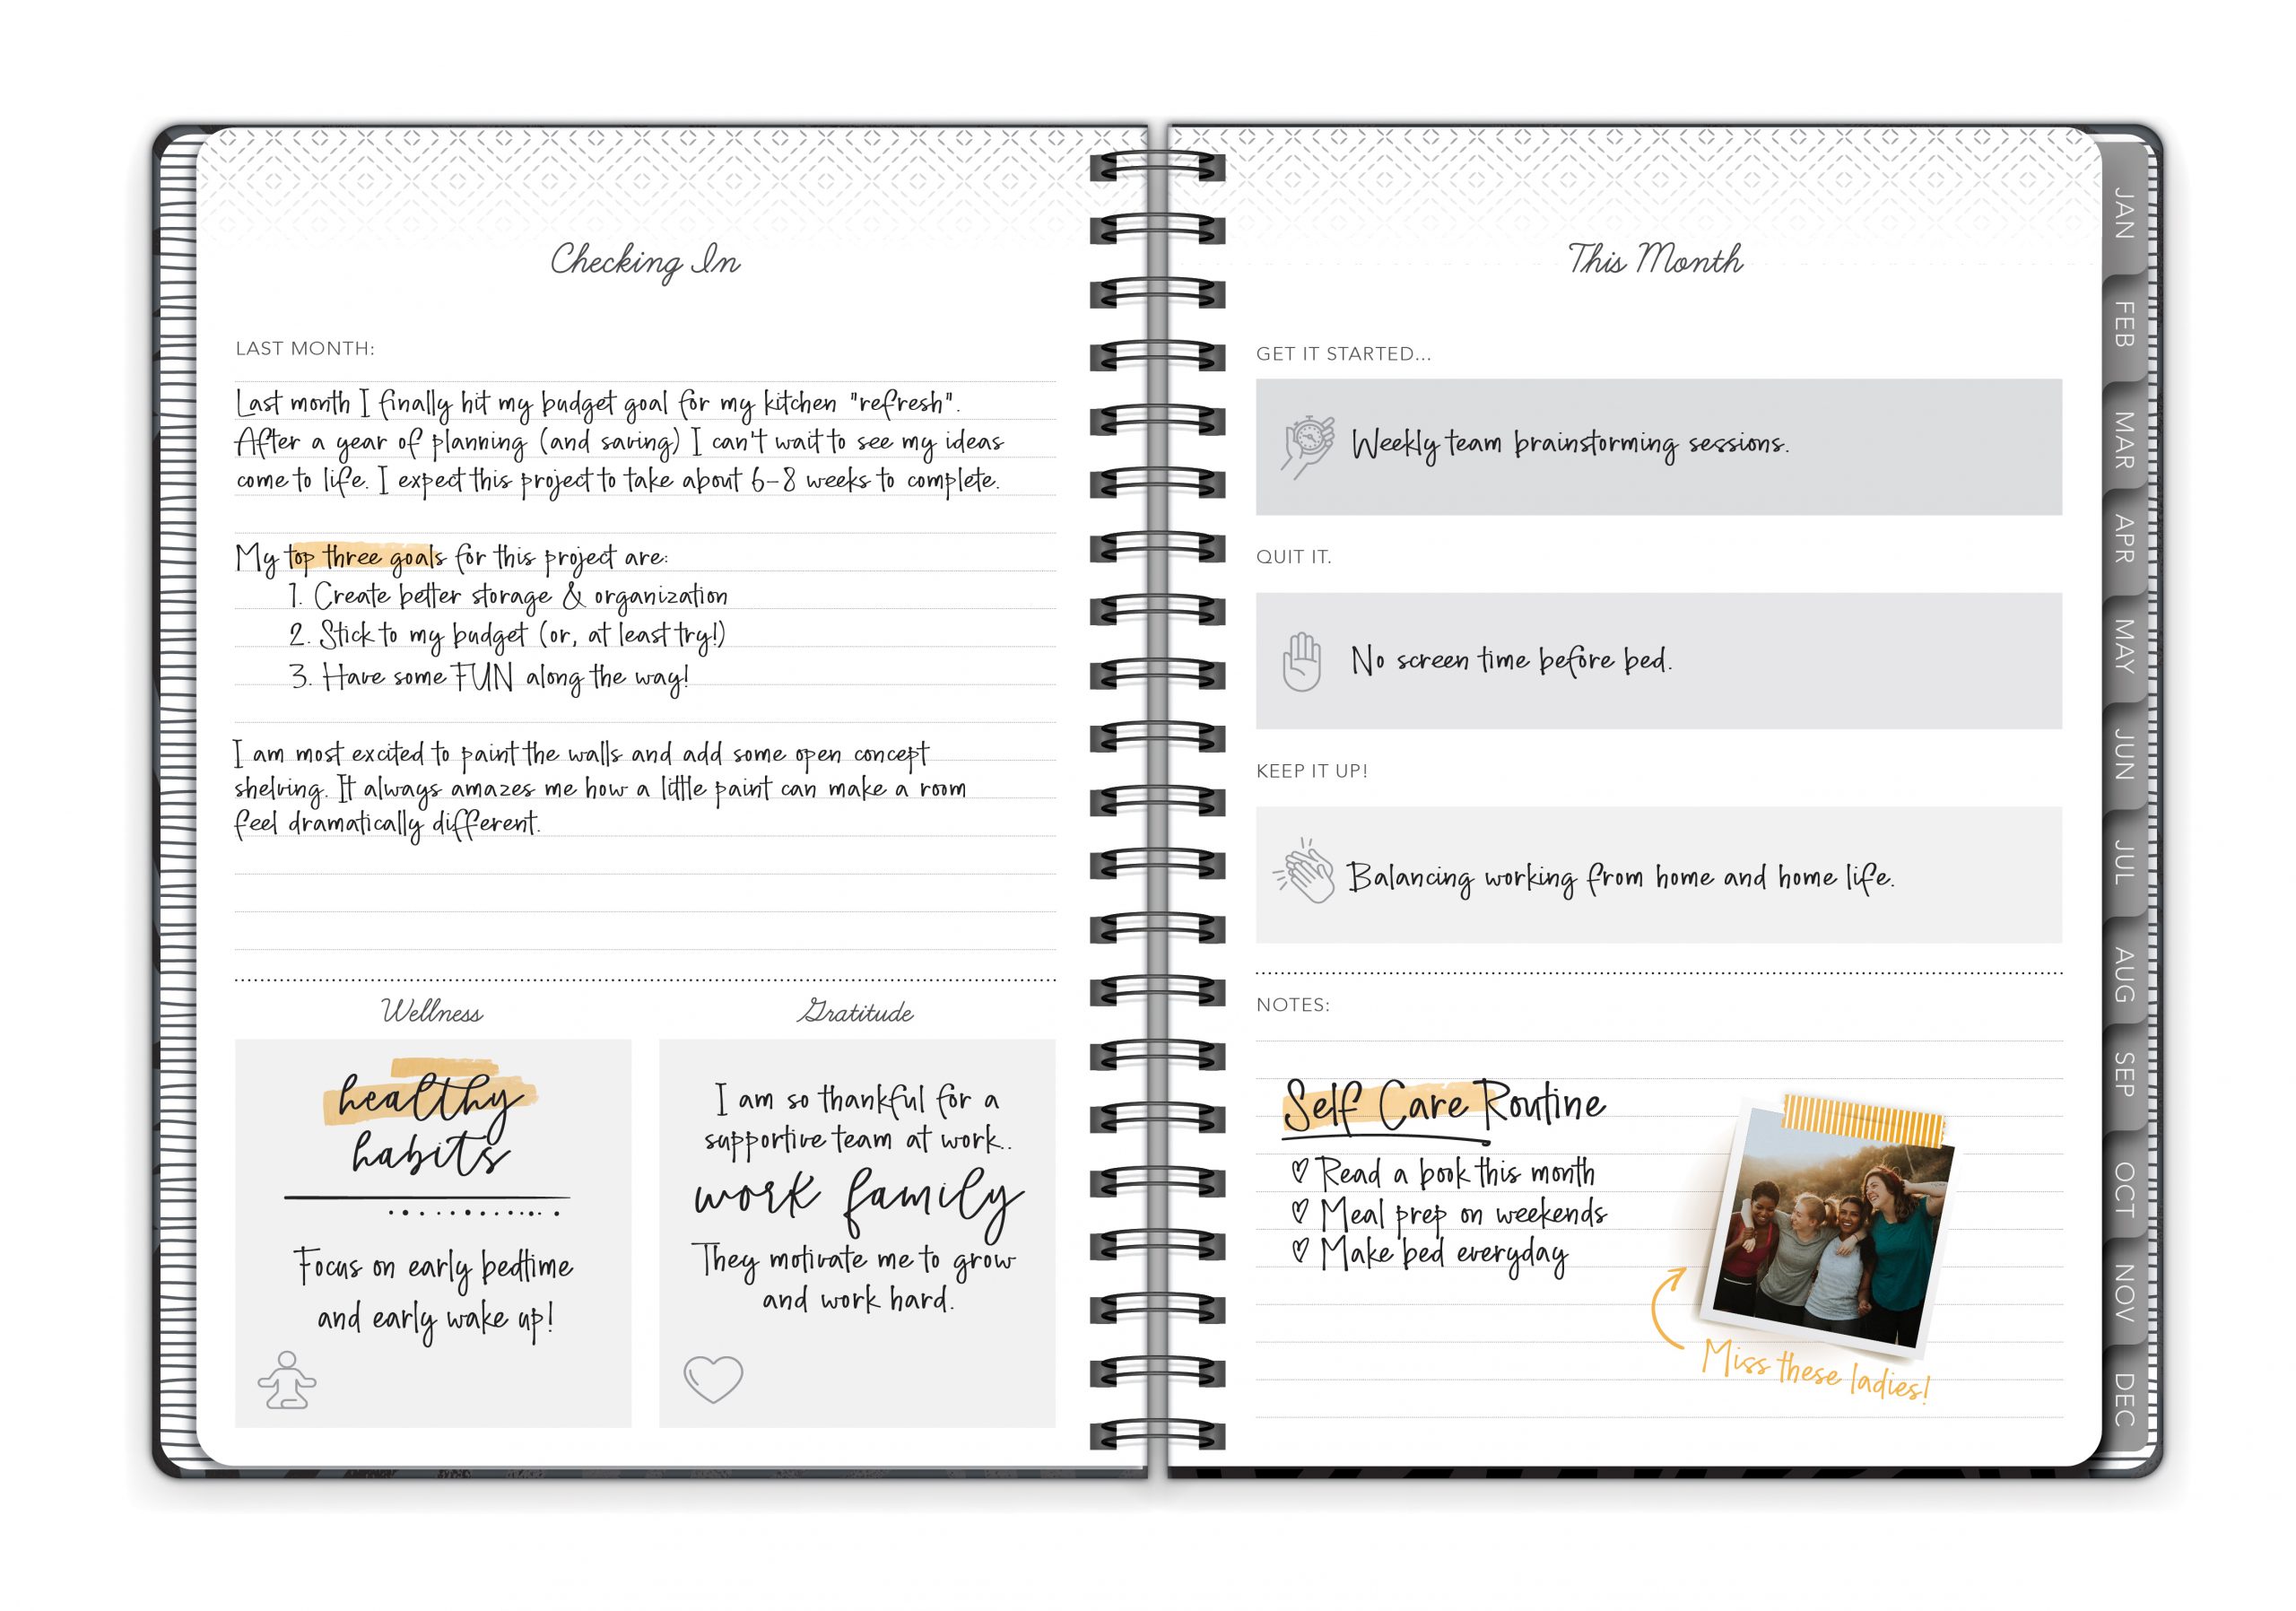 Checking In
LAST MONTH:
Last month I finally hit my budget goal for my kitchen "refresh".
After a year of planning (and saving) I can't wait to see my ideas
come to life. I expect this project to take about 6-8 weeks to complete.
My top three goals for this project are:
1. Create better storage & organization
2. Stick to my budget (or, at least try!)
3. Have some FUN along the way!
I am most excited to paint the walls and add some open concept
shelving. It always amazes me how a little paint can make a room
feel dramatically different.
Wellness
healthy
habits
Focus on early bedtime
and early wake up!
Gratitude
I am so thankful for a
supportive team at work..
work family
They motivate me to grow
and work hard.
This Month
GET IT STARTED...
Weekly team brainstorming sessions.
QUIT IT.
No screen time before bed.
KEEP IT UP!
Balancing working from home and home life.
NOTES:
Self Care Routine
Read a book this month
Meal prep on weekends
Make bed everyday
Miss these ladies!
JAN
FEB
MAR
APR
MAY
JUN
JUL
AUG
SEP
OCT
NOV
DEC